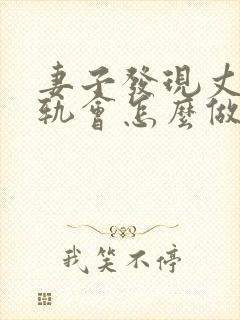 妻子發現丈
軌會怎麼做
我笑不停